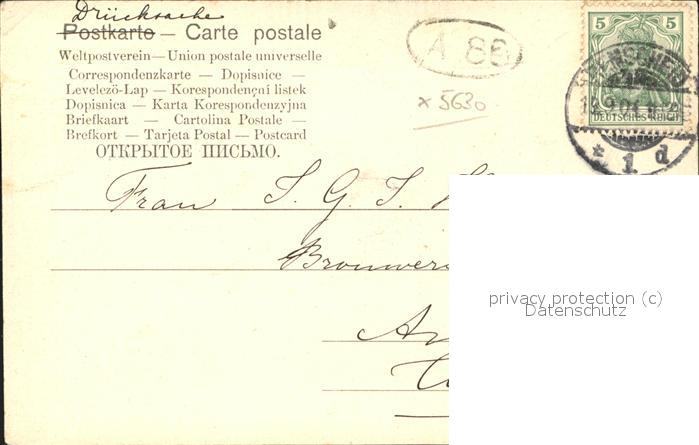 Drucksache
Postkarte — Carte postale
Weltpostverein — Union postale universelle
Correspondenzkarte — Dopisnice —
Levelezö-Lap — Korespondenční listek
Dopisnica — Karta Korespondenzyjna
Briefkaart — Cartolina Postale —
Brefkort — Tarjeta Postal — Postcard
ОТКРЫТОЕ ПИСЬМО.
A 86
x 5630
5 5
DEUTSCHES REICH
12.9.04
* 1 d
Frau S. G. S.
privacy protection (c)
Datenschutz